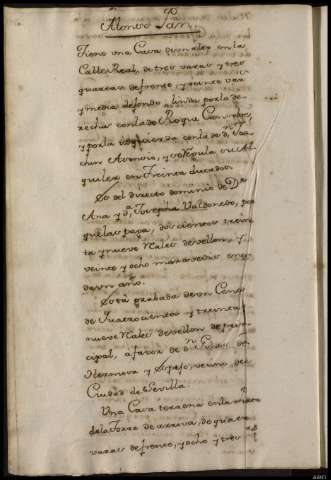 Alonso
Tiene una Casa en la
Calle Real, de tres varas y tres
quartas de frente y veinte va
y media de fondo, linda por la de
recha con la de Roque
y por la izquierda con la de dn Joa
chin y se Regula su Al
quiler en Treinta ducados
Es del directo dominio de Da
Ana y da Josepha por
que las paga, dos cientos trein
ta y nueve Rales de vellon, y
veinte y ocho maravedis en ca
da un año.
Está grabada de un Censo
de Quatrocientos y treinta y
nueve Rales de vellon de prin
cipal, a favor de dn
vecino de la
Ciudad de Sevilla.
Una Casa terrena en la
de la Torre de arriva, de quatro
varas de frente, y ocho y tres